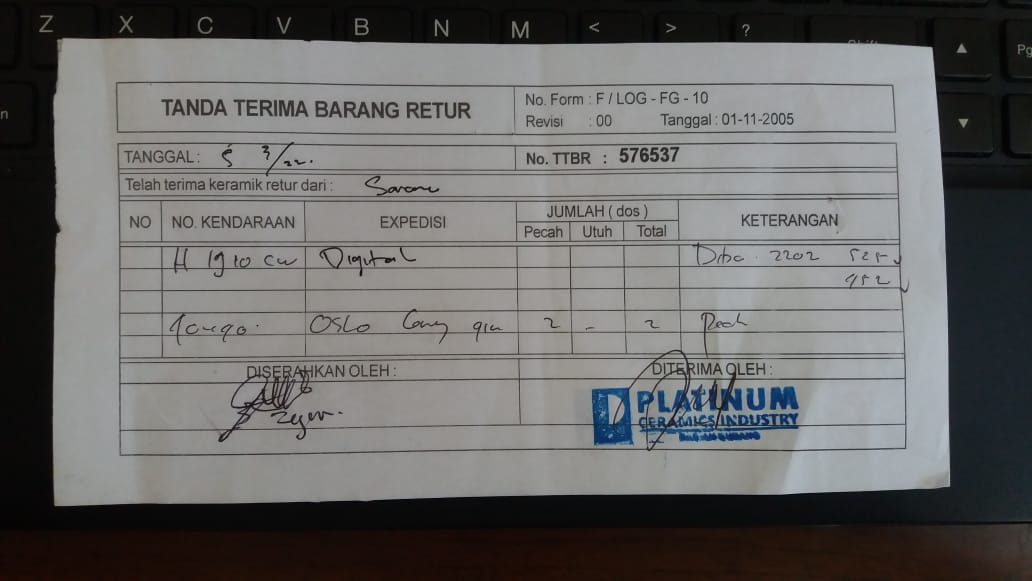 Z X C V B N M < > ?
TANDA TERIMA BARANG RETUR
No. Form : F / LOG - FG - 10
Revisi : 00 Tanggal : 01-11-2005
TANGGAL : 5 3/22.
No. TTBR : 576537
Telah terima keramik retur dari :
NO NO. KENDARAAN EXPEDISI JUMLAH ( dos ) KETERANGAN
Pecah Utuh Total
H 1910 CW Digital 2202 525
952
OSLO 2 - 2
DISERAHKAN OLEH : DITERIMA OLEH :
PLATINUM
CERAMICS INDUSTRY